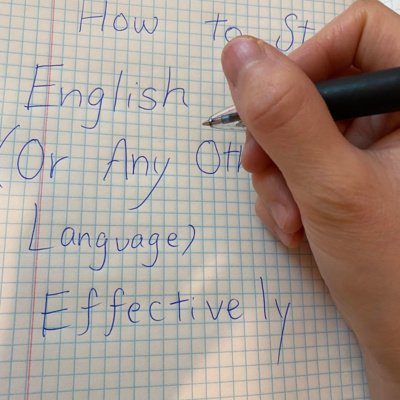 How to St
English
(Or Any Oth
Language)
Effectively